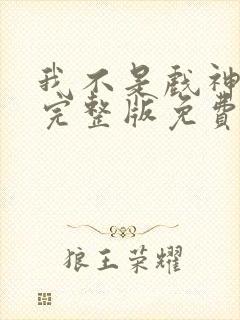 我不是戲神
完整版免費
狼王荣耀